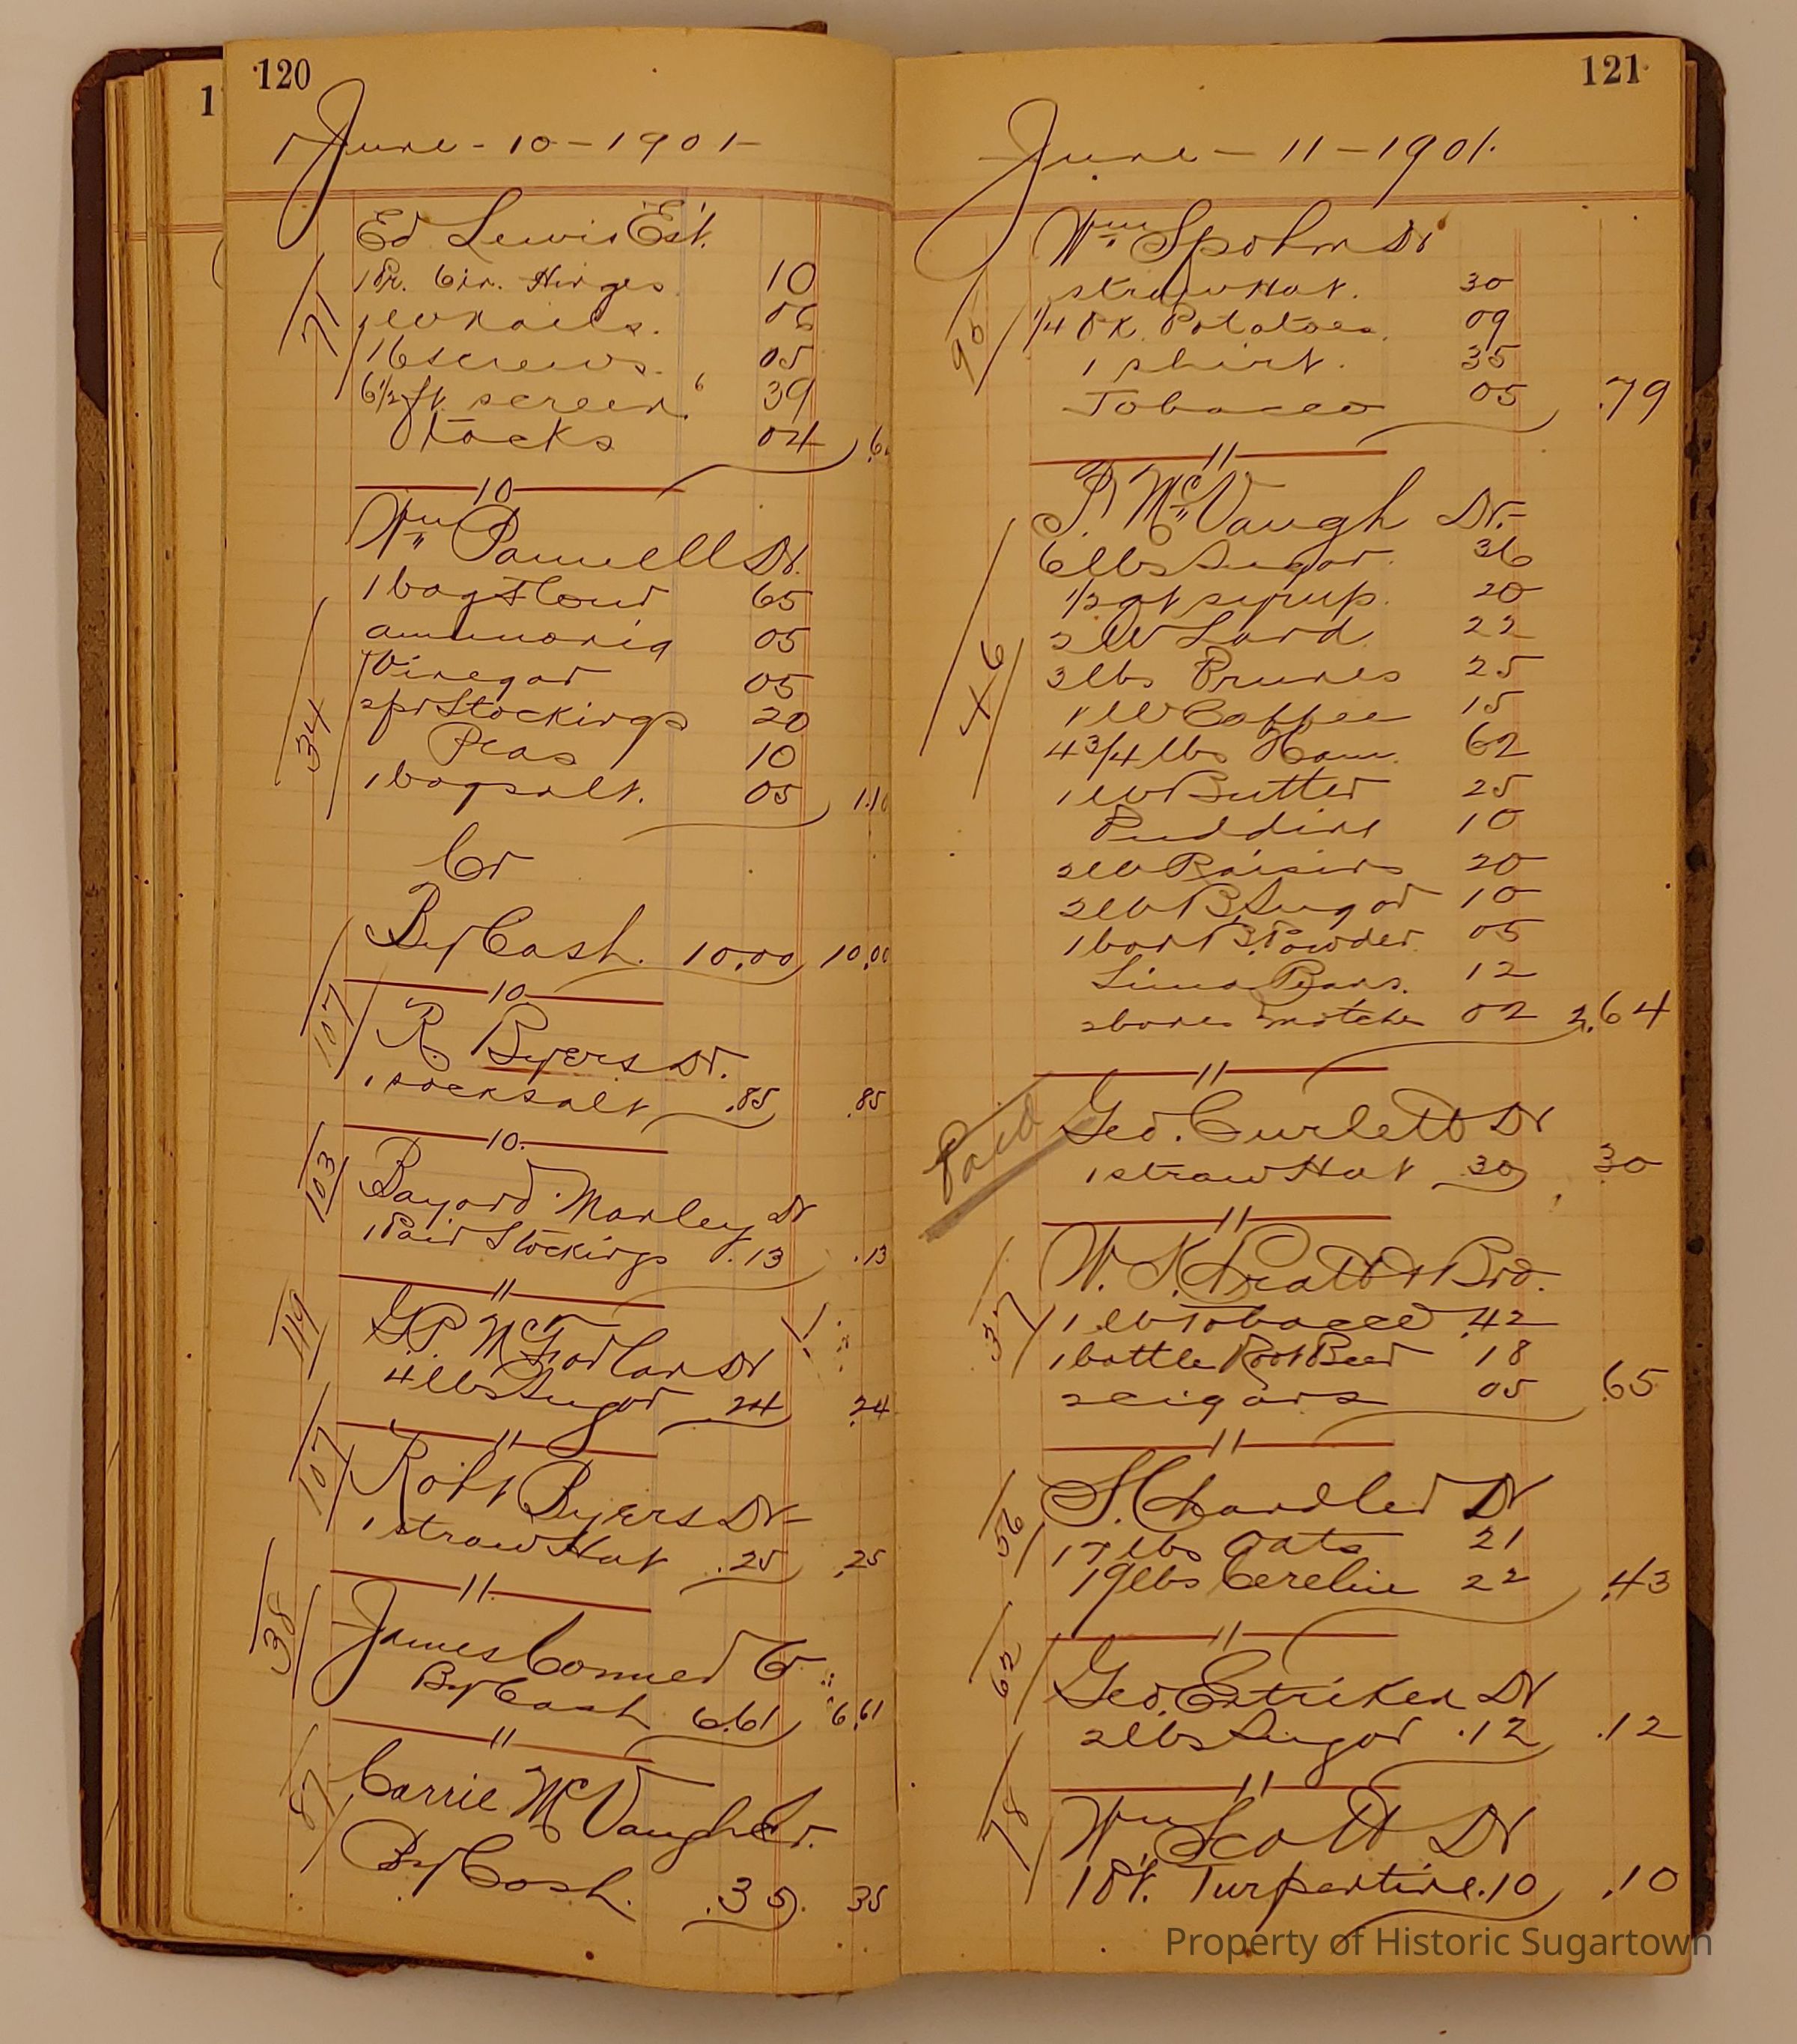 120
June-10-1901-
Ed Lewis Est.
1 Pr. Cir. Hinges 10
1 lb nails. 06
16 screws. 05
6 1/2 ft. screen. 6 39
tacks 04 .6
71
10
Wm Pannell Dr.
1 bag Flour 65
ammonia 05
Vinegar 05
2 pr Stockings 20
Peas 10
1 bag salt. 05 1.10
34
Cr
By Cash. 10.00 10.00
10
107
R Byers Dr.
1 sack salt .85 .85
10.
103
Bayard Marley Dr
1 Pair Stockings .13 .13
11
119
G.P. McFarlan Dr
4 lbs Sugar .24 .24
11
107
Robt Byers Dr-
1 straw Hat .25 .25
11
38
James Conner Cr
By Cash 6.61 6.61
11
87
Carrie McVaugh Cr.
By Cash. .35 35
121
June-11-1901.
Wm Spohn Dr
straw Hat. 30
1/4 Pk. Potatoes. 09
1 shirt. 35
Tobacco 05 .79
90
11
P. McVaugh Dr.-
6 lbs Sugar. 36
1/2 gt syrup. 20
2 lb Lard 22
3 lbs Prunes 25
1 lb Coffee 15
4 3/4 lbs Ham. 62
1 lb Butter 25
Puddine 10
2 lb Raisins 20
2 lb B Sugar 10
1 box B. Powder 05
Lima Beans. 12
2 boxes matches 02 2.64
46
11
Paid
Geo. Curlett Dr
1 straw Hat 30 30
11
W. K. Pratt & Bro.
1 lb Tobacco .42
1 bottle Root Beer 18
2 cigars 05 .65
37
11
S. Chandler Dr
17 lbs Oats 21
19 lbs Cereline 22 .43
56
11
62
Geo. Entriken Dr
2 lbs Sugar .12 .12
11
78
Wm Scott Dr
1 Pt. Turpentine .10 .10
Property of Historic Sugartown